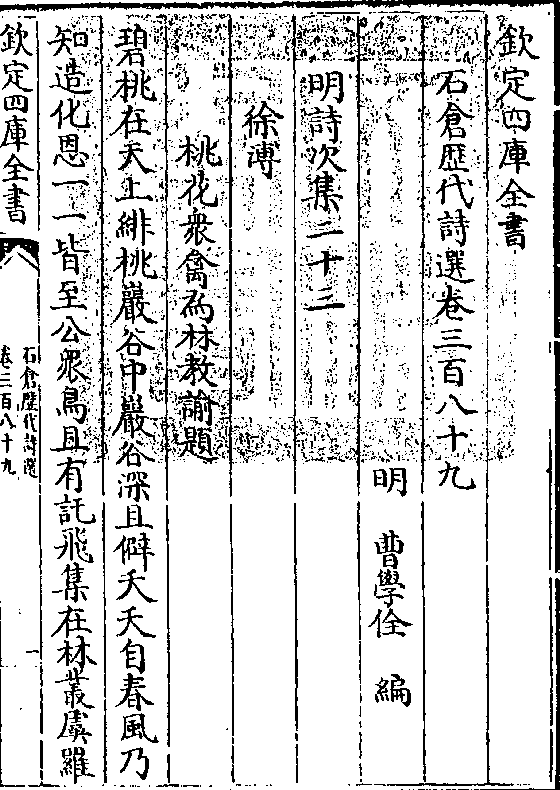 欽定四庫全書
石倉歴代詩選卷三百八十九
明 曹學佺 編
明詩次集二十三
徐溥
桃花衆禽為林教諭題
碧桃在天上緋桃巖谷中巖谷深且僻夭夭自春風乃
知造化恩一一皆至公衆鳥且有託飛集在林叢虞羅
欽定四庫全書
石倉歴代詩選
卷三百八十九
一